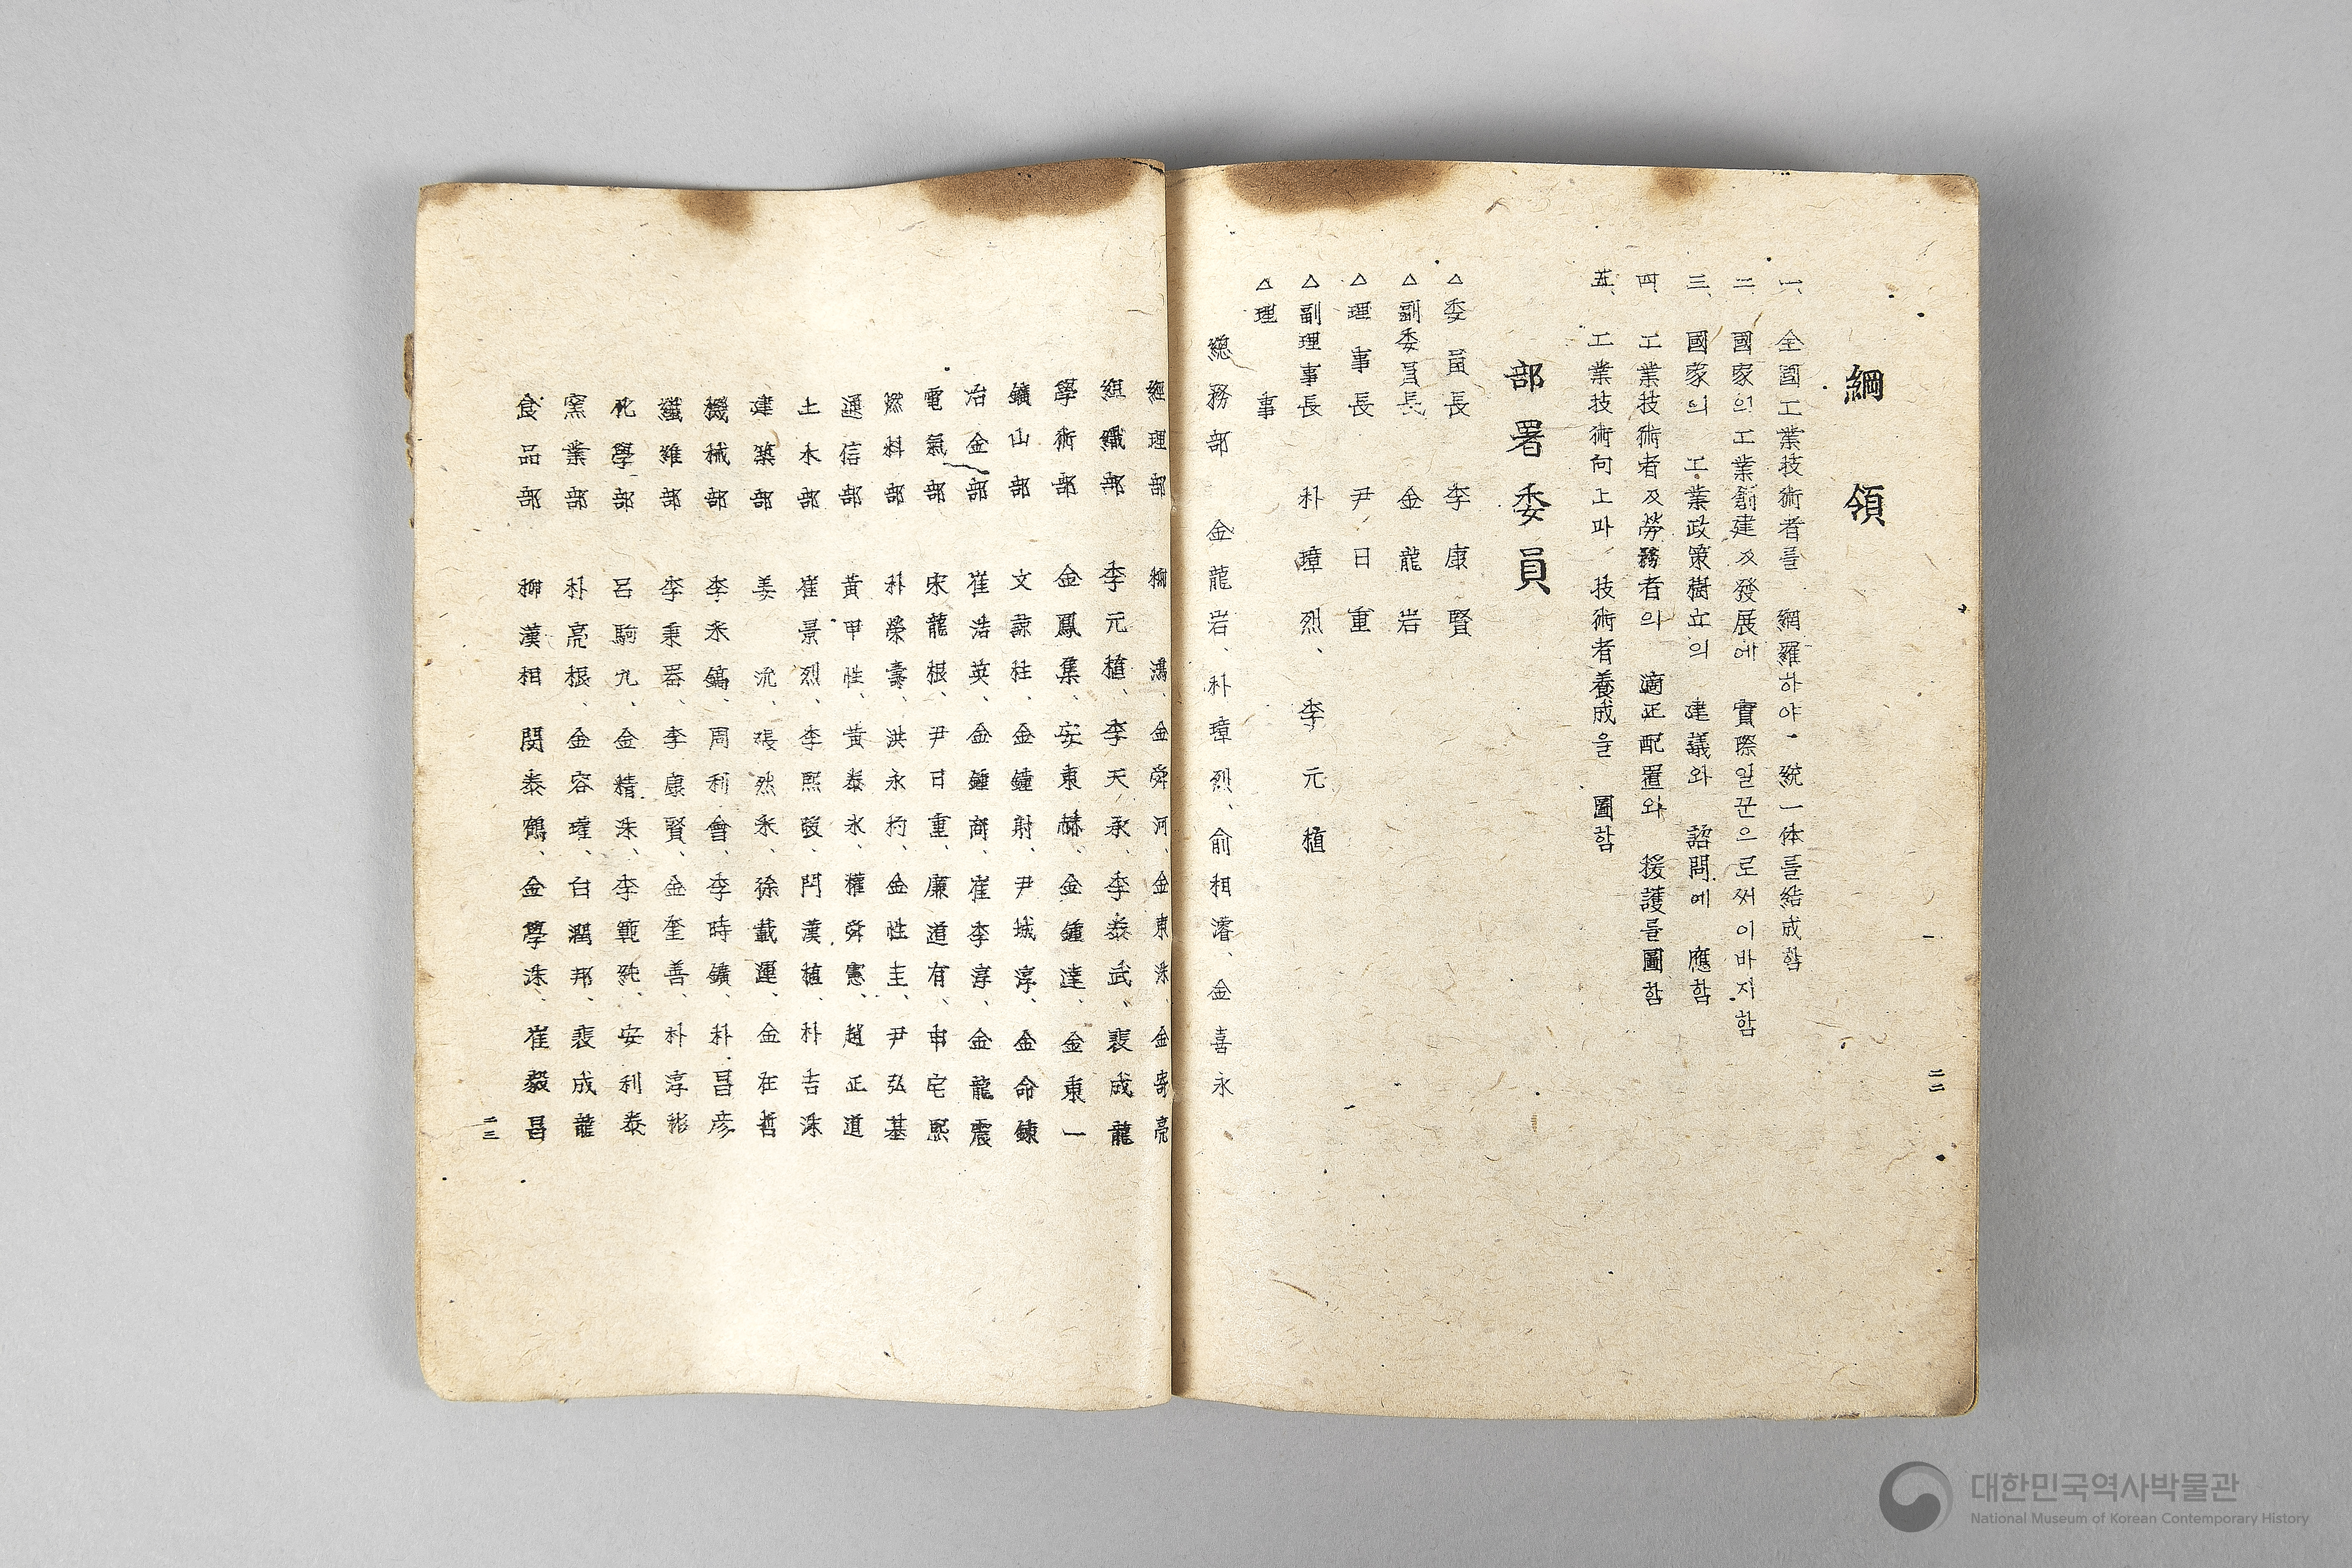 綱領
一、全國工業技術者를 網羅하야 統一体를結成함
二、國家의工業創建及發展에 實際일꾼으로써이바지함
三、國家의 工業政策樹立의 建議와 諮問에 應함
四、工業技術者及勞務者의 適正配置와 援護를圖함
五、工業技術向上과 技術者養成을 圖함
部署委員
△委員長 李康賢
△副委員長 金龍岩
△理事長 尹日重
△副理事長 朴璋烈、李元植
△理事
總務部 金龍岩、朴璋烈、俞相濬、金喜永
二二
經理部 柳鴻、金舜河、金東洙、金寄亮
組織部 李元植、李天承、李泰武、裵成龍
學術部 金鳳集、安東赫、金鍾達、金東一
鑛山部 文諒柱、金鐘射、尹城淳、金命鍊
冶金部 崔浩英、金鍾商、崔李淳、金龍震
電氣部 宋龍根、尹日重、廉道有、申宅熙
燃料部 朴榮壽、洪永杓、金性主、尹弘基
通信部 黃甲性、黃泰永、權舜憲、趙正道
土木部 崔景烈、李熙畯、鬥漢植、朴吉洙
建築部 姜沇、張然釆、徐載運、金在哲
機械部 李釆鎬、周利會、李時鑛、朴昌彦
纖維部 李秉器、李康賢、金奎善、朴淳彬
化學部 呂駒九、金精洙、李範純、安利泰
窯業部 朴亮根、金容瓘、白潤邦、裵成龍
食品部 柳漢相、閔泰鶴、金學洙、崔毅昌
二三
대한민국역사박물관
National Museum of Korean Contemporary History